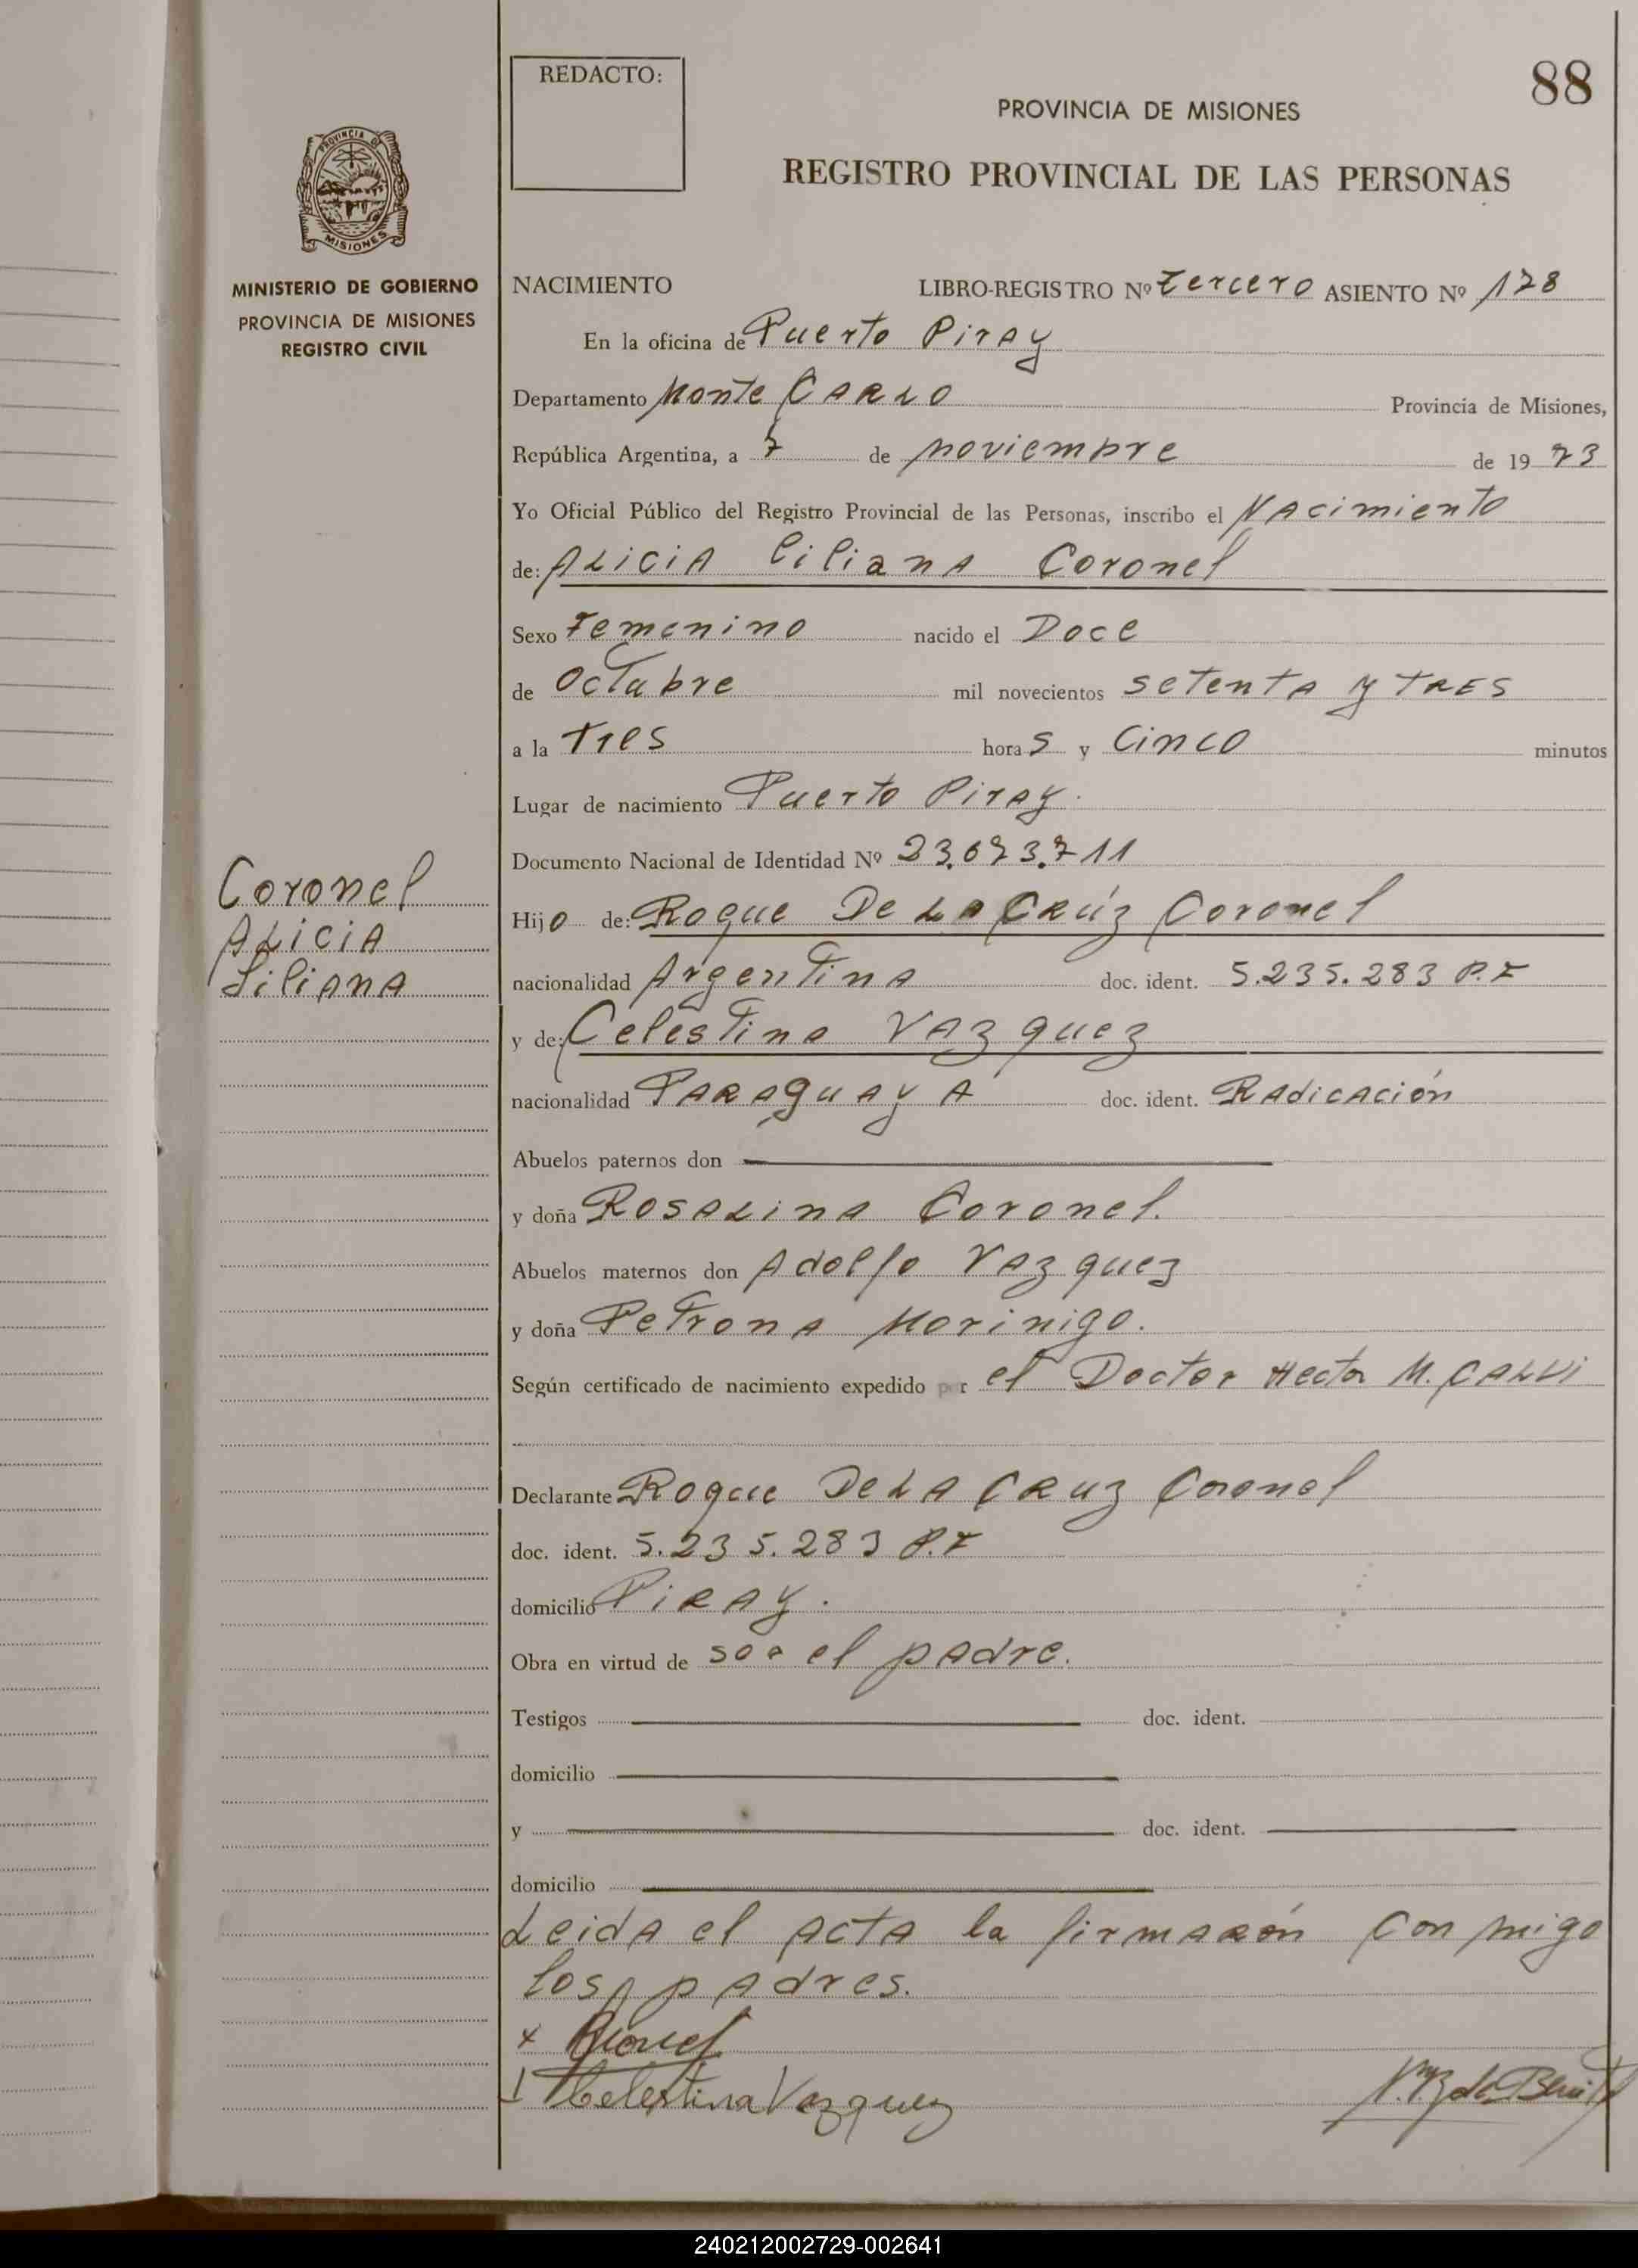 REDACTO:
88
PROVINCIA DE MISIONES
REGISTRO PROVINCIAL DE LAS PERSONAS
PROVINCIA DE
MISIONES
MINISTERIO DE GOBIERNO
PROVINCIA DE MISIONES
REGISTRO CIVIL
NACIMIENTO LIBRO-REGISTRO Nº tercero ASIENTO Nº 178
En la oficina de Puerto Piray
Departamento Monte Carlo Provincia de Misiones,
República Argentina, a 7 de noviembre de 19 73
Yo Oficial Público del Registro Provincial de las Personas, inscribo el Nacimiento
de: Alicia Liliana Coronel
Sexo Femenino nacido el Doce
de Octubre mil novecientos setenta y tres
a la tres horas y Cinco minutos
Lugar de nacimiento Puerto Piray.
Documento Nacional de Identidad Nº 23.673.711
Coronel
Alicia
Liliana
Hijo de: Roque De La Crúz Coronel
nacionalidad Argentina doc. ident. 5.235.283 P.F
y de: Celestina Vazquez
nacionalidad Paraguaya doc. ident. Radicación
Abuelos paternos don
y doña Rosalina Coronel.
Abuelos maternos don Adolfo Vazquez
y doña Petrona Morinigo.
Según certificado de nacimiento expedido por el Doctor Hector M. Calvi
Declarante Roque De La Cruz Coronel
doc. ident. 5.235.283 P.F
domicilio Piray.
Obra en virtud de ser el padre.
Testigos doc. ident.
domicilio
y doc. ident.
domicilio
Leida el acta la firmarón con migo
los padres.
x RCoronel
Celestina Vazquez
240212002729-002641